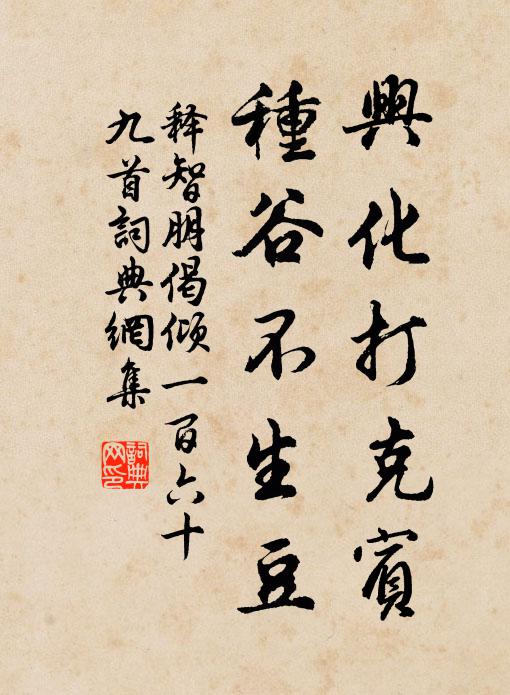 興化打克賓
種谷不生豆
釋智朋偈傾一百六十
九首詞典網集
詞典網印